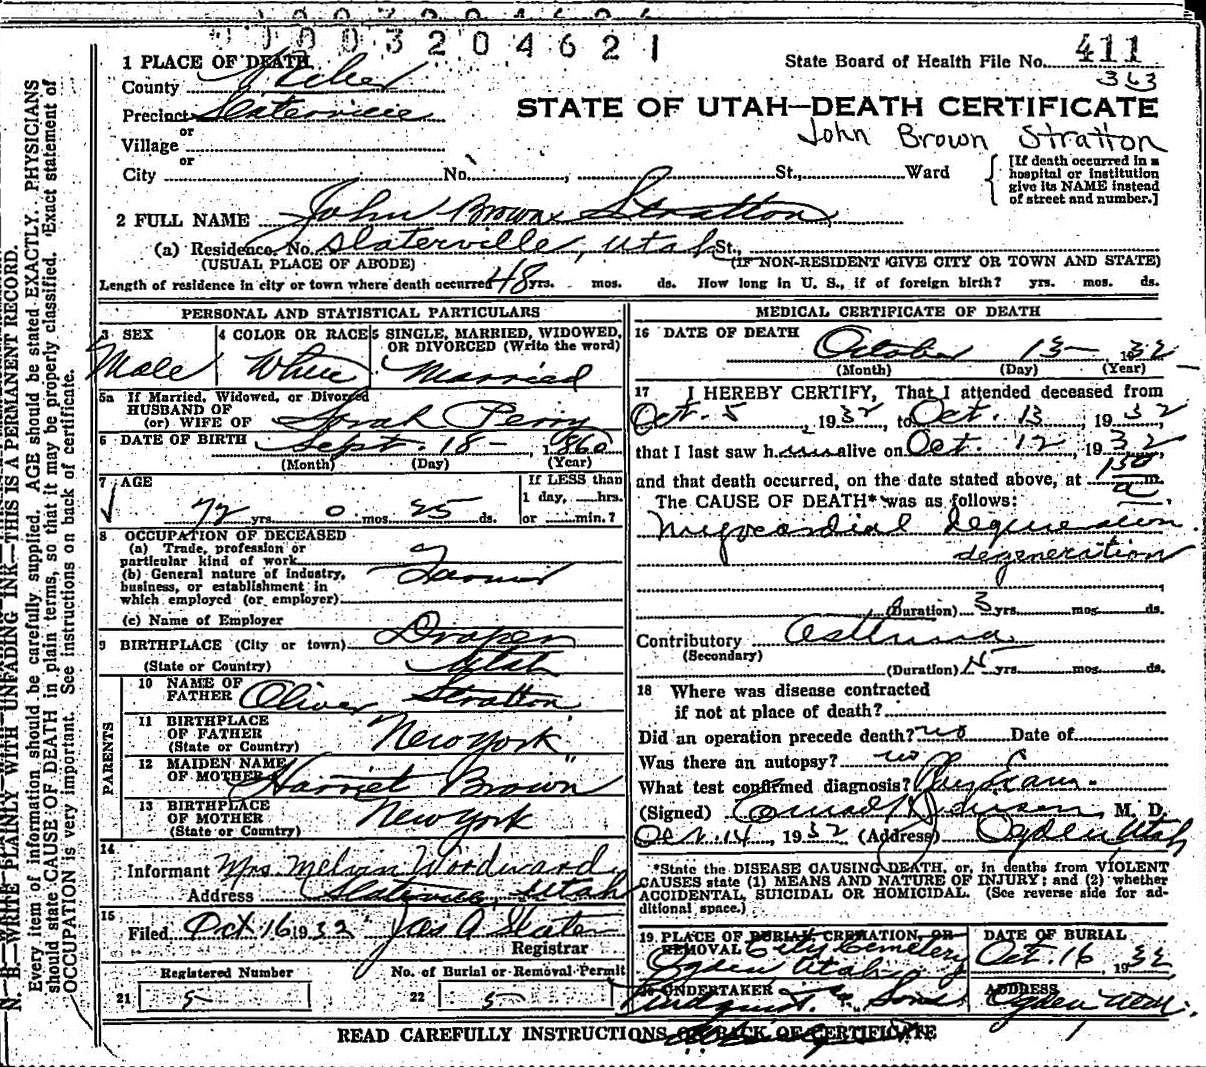 0003204621
1 PLACE OF DEATH
State Board of Health File No. 411
363
County Weber
Precinct Slaterville
STATE OF UTAH—DEATH CERTIFICATE
or
John Brown Stratton
Village
or
City No. , St., Ward
[If death occurred in a hospital or institution give its NAME instead of street and number.]
2 FULL NAME John Brown Stratton
(a) Residence No. Slaterville, Utah St.,
(USUAL PLACE OF ABODE) (IF NON-RESIDENT GIVE CITY OR TOWN AND STATE)
Length of residence in city or town where death occurred 48 yrs. mos. ds. How long in U. S., if of foreign birth? yrs. mos. ds.
PERSONAL AND STATISTICAL PARTICULARS
3 SEX
Male
4 COLOR OR RACE
White
5 SINGLE, MARRIED, WIDOWED, OR DIVORCED (Write the word)
Married
5a If Married, Widowed, or Divorced
HUSBAND OF
(or) WIFE OF Sarah Perry
6 DATE OF BIRTH Sept. 18 - , 1860
(Month) (Day) (Year)
7 AGE
72 yrs. 0 mos. 25 ds.
If LESS than
1 day, hrs.
or min.?
8 OCCUPATION OF DECEASED
(a) Trade, profession or
particular kind of work
Farmer
(b) General nature of industry,
business, or establishment in
which employed (or employer)
(c) Name of Employer
9 BIRTHPLACE (City or town) Draper
(State or Country) Utah
PARENTS
10 NAME OF FATHER Oliver Stratton
11 BIRTHPLACE OF FATHER (State or Country) New York
12 MAIDEN NAME OF MOTHER Harriet Brown
13 BIRTHPLACE OF MOTHER (State or Country) New York
14
Informant Mrs. Melvin Woodward
Address Slaterville, Utah
15
Filed Oct 16 1932 Jas A Slater
Registrar
Registered Number
21 5
No. of Burial or Removal Permit
22 5
MEDICAL CERTIFICATE OF DEATH
16 DATE OF DEATH
October 13 - , 1932
(Month) (Day) (Year)
17 I HEREBY CERTIFY, That I attended deceased from
Oct. 5, 1932 to Oct. 13, 1932
that I last saw him alive on Oct. 12, 1932,
and that death occurred, on the date stated above, at 150 a m.
The CAUSE OF DEATH* was as follows:
Myocardial degeneration
degeneration
(Duration) 3 yrs. mos. ds.
Contributory Asthma
(Secondary)
(Duration) yrs. mos. ds.
18 Where was disease contracted
if not at place of death?
Did an operation precede death? no Date of
Was there an autopsy? no
What test confirmed diagnosis? Phys Exam.
(Signed) Conrad H Jenson, M. D.
Oct. 14, 1932 (Address) Ogden Utah
*State the DISEASE CAUSING DEATH, or, in deaths from VIOLENT
CAUSES state (1) MEANS AND NATURE OF INJURY; and (2) whether
ACCIDENTAL, SUICIDAL OR HOMICIDAL. (See reverse side for additional space.)
19 PLACE OF BURIAL, CREMATION, OR REMOVAL City Cemetery
Ogden Utah
DATE OF BURIAL
Oct. 16, 1932
20 UNDERTAKER
Lindquist & Sons
ADDRESS
Ogden Utah.
READ CAREFULLY INSTRUCTIONS ON BACK OF CERTIFICATE
N. B.—WRITE PLAINLY WITH UNFADING INK—THIS IS A PERMANENT RECORD.
Every item of information should be carefully supplied. AGE should be stated EXACTLY. PHYSICIANS
should state CAUSE OF DEATH in plain terms, so that it may be properly classified. Exact statement of
OCCUPATION is very important. See instructions on back of certificate.